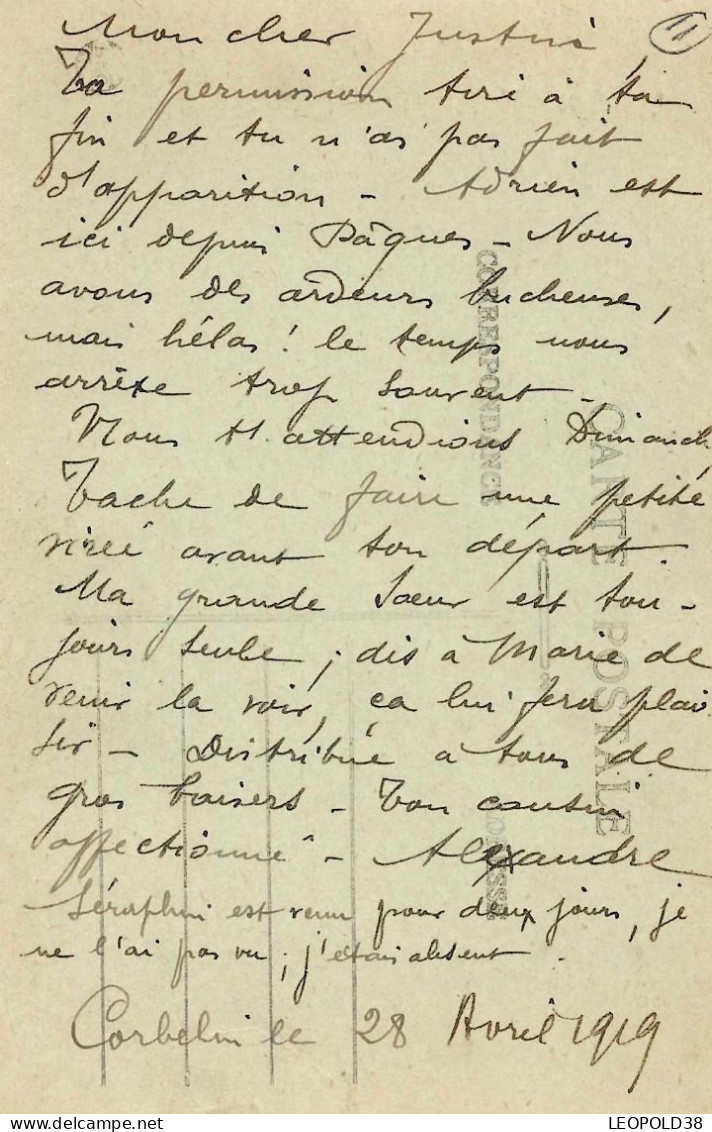 Mon cher Justin,
11
Ta permission tire à ta
fin et tu n'as pas fait
d'apparition - Adrien est
ici depuis Pâques - Nous
avons des ardeurs bucheuses,
mais hélas ! le temps nous
arrête trop souvent -
Nous t'attendions Dimanch
Tache de faire une petite
virée avant ton départ.
Ma grande Sœur est tou-
jours seule ; dis à Marie de
venir la voir, ça lui fera plai
sir - Distribue à tous de
gros baisers - Ton cousin
affectionné - Alexandre
Séraphin est venu pour deux jours, je
ne l'ai pas vu ; j'étais absent.
Corbelin le 28 Avril 1919
CARTE POSTALE
CORRESPONDANCE
LEOPOLD38